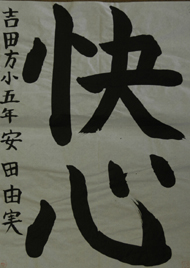 快心
吉田方小五年 安田由実